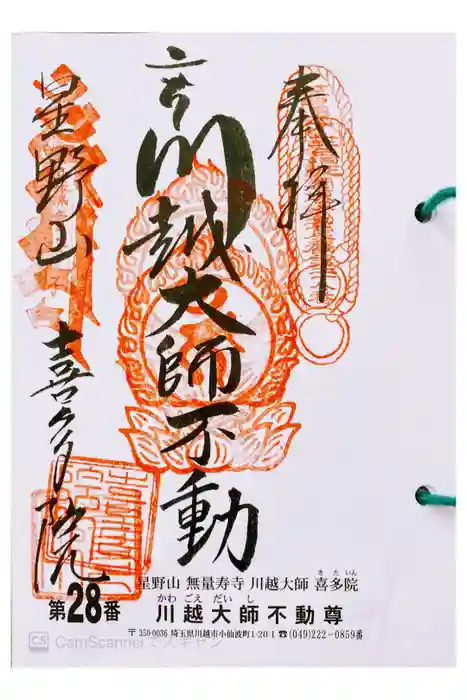 奉拝
川越大師不動
星野山 喜多院
星野山 無量寿寺 川越大師 喜多院
きたいん
かわごえだいし
第28番 川越大師不動尊
〒350-0036 埼玉県川越市小仙波町1-20-1 ☎(049)222-0859番
CS CamScannerでスキャン